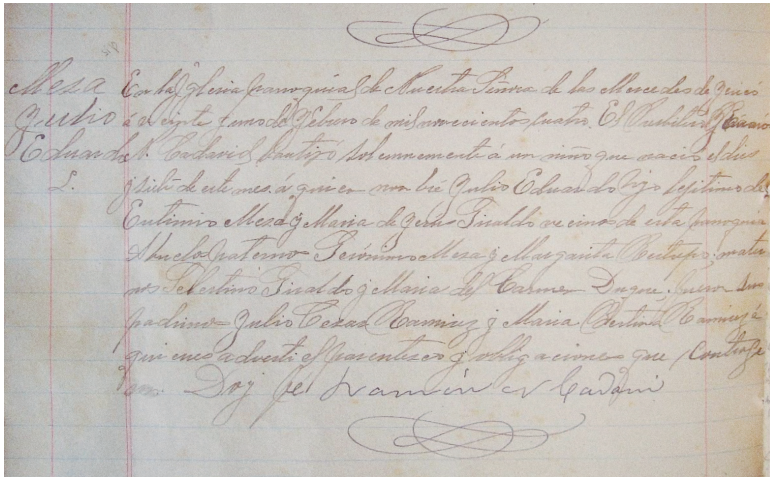 Meza
Julio
Eduardo
L.
En la Yglesia parroquial de Nuestra Señora de las Mercedes de
á veinte y uno de Febrero de mil novecientos cuatro. El Presbítero
N. Cadavid bautizó solemnemente á un niño que nació el dies
y siete de este mes, á quien nombré Julio Eduardo hijo legítimo de
Eutimio Meza y Maria de Jesus Giraldo vecinos de esta parroquia
Abuelos paternos Gerónimo Meza y Margarita Restrepo; mater-
nos Celestino Giraldo y Maria del Carmen Duque. fueron sus
padrinos Julio Cesar Ramirez y Maria Ramirez á
quienes advertí el parentesco y obligaciones que contraje
ron. Doy fé Ramón N Cadavid